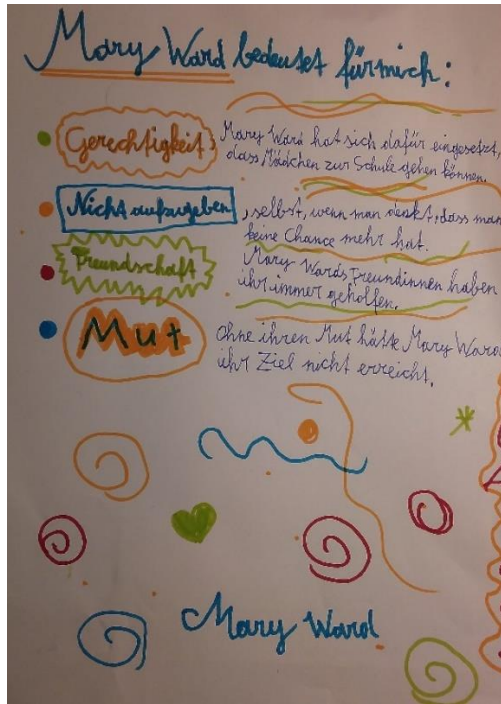 Mary Ward bedeutet für mich:
Gerechtigkeit: Mary Ward hat sich dafür eingesetzt,
dass Mädchen zur Schule gehen können.
Nicht aufzugeben, selbst, wenn man denkt, dass man
keine Chance mehr hat.
Freundschaft Mary Wards Freundinnen haben
ihr immer geholfen.
Mut Ohne ihren Mut hätte Mary Ward
ihr Ziel nicht erreicht.
Mary Ward